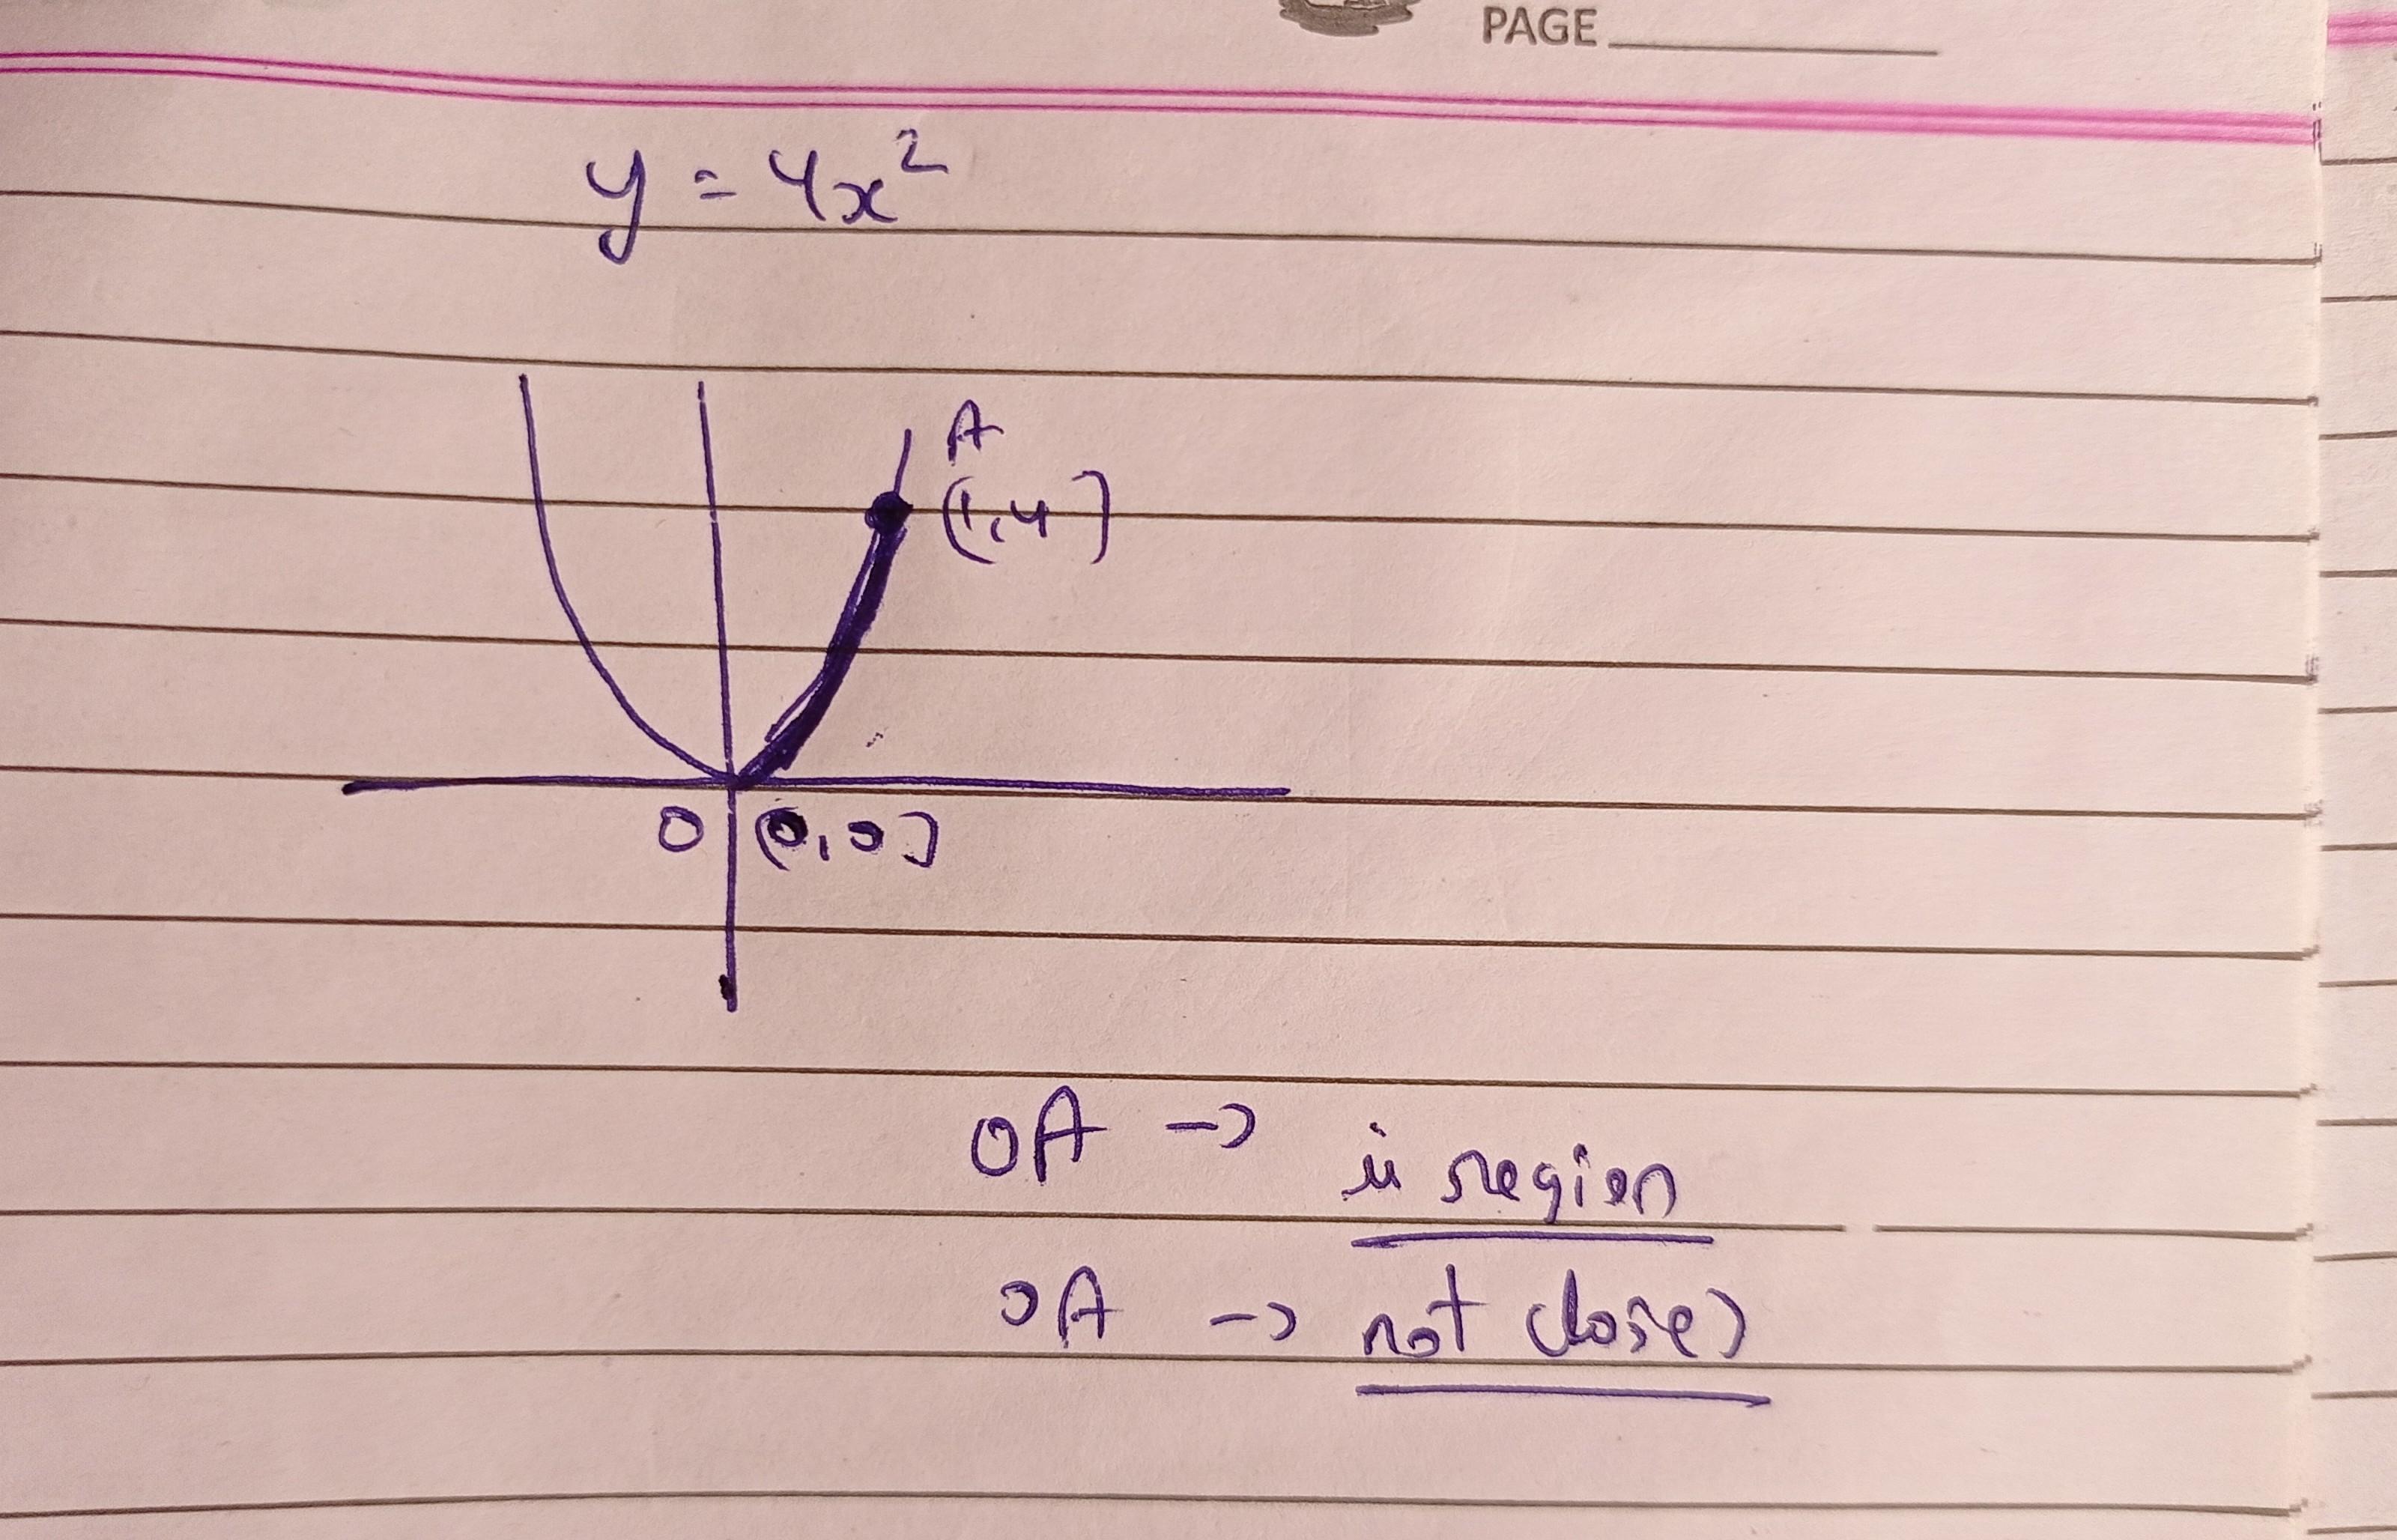 PAGE
y = 4x²
A
(1,4)
O (0,0)
OA → is region
OA → not close)